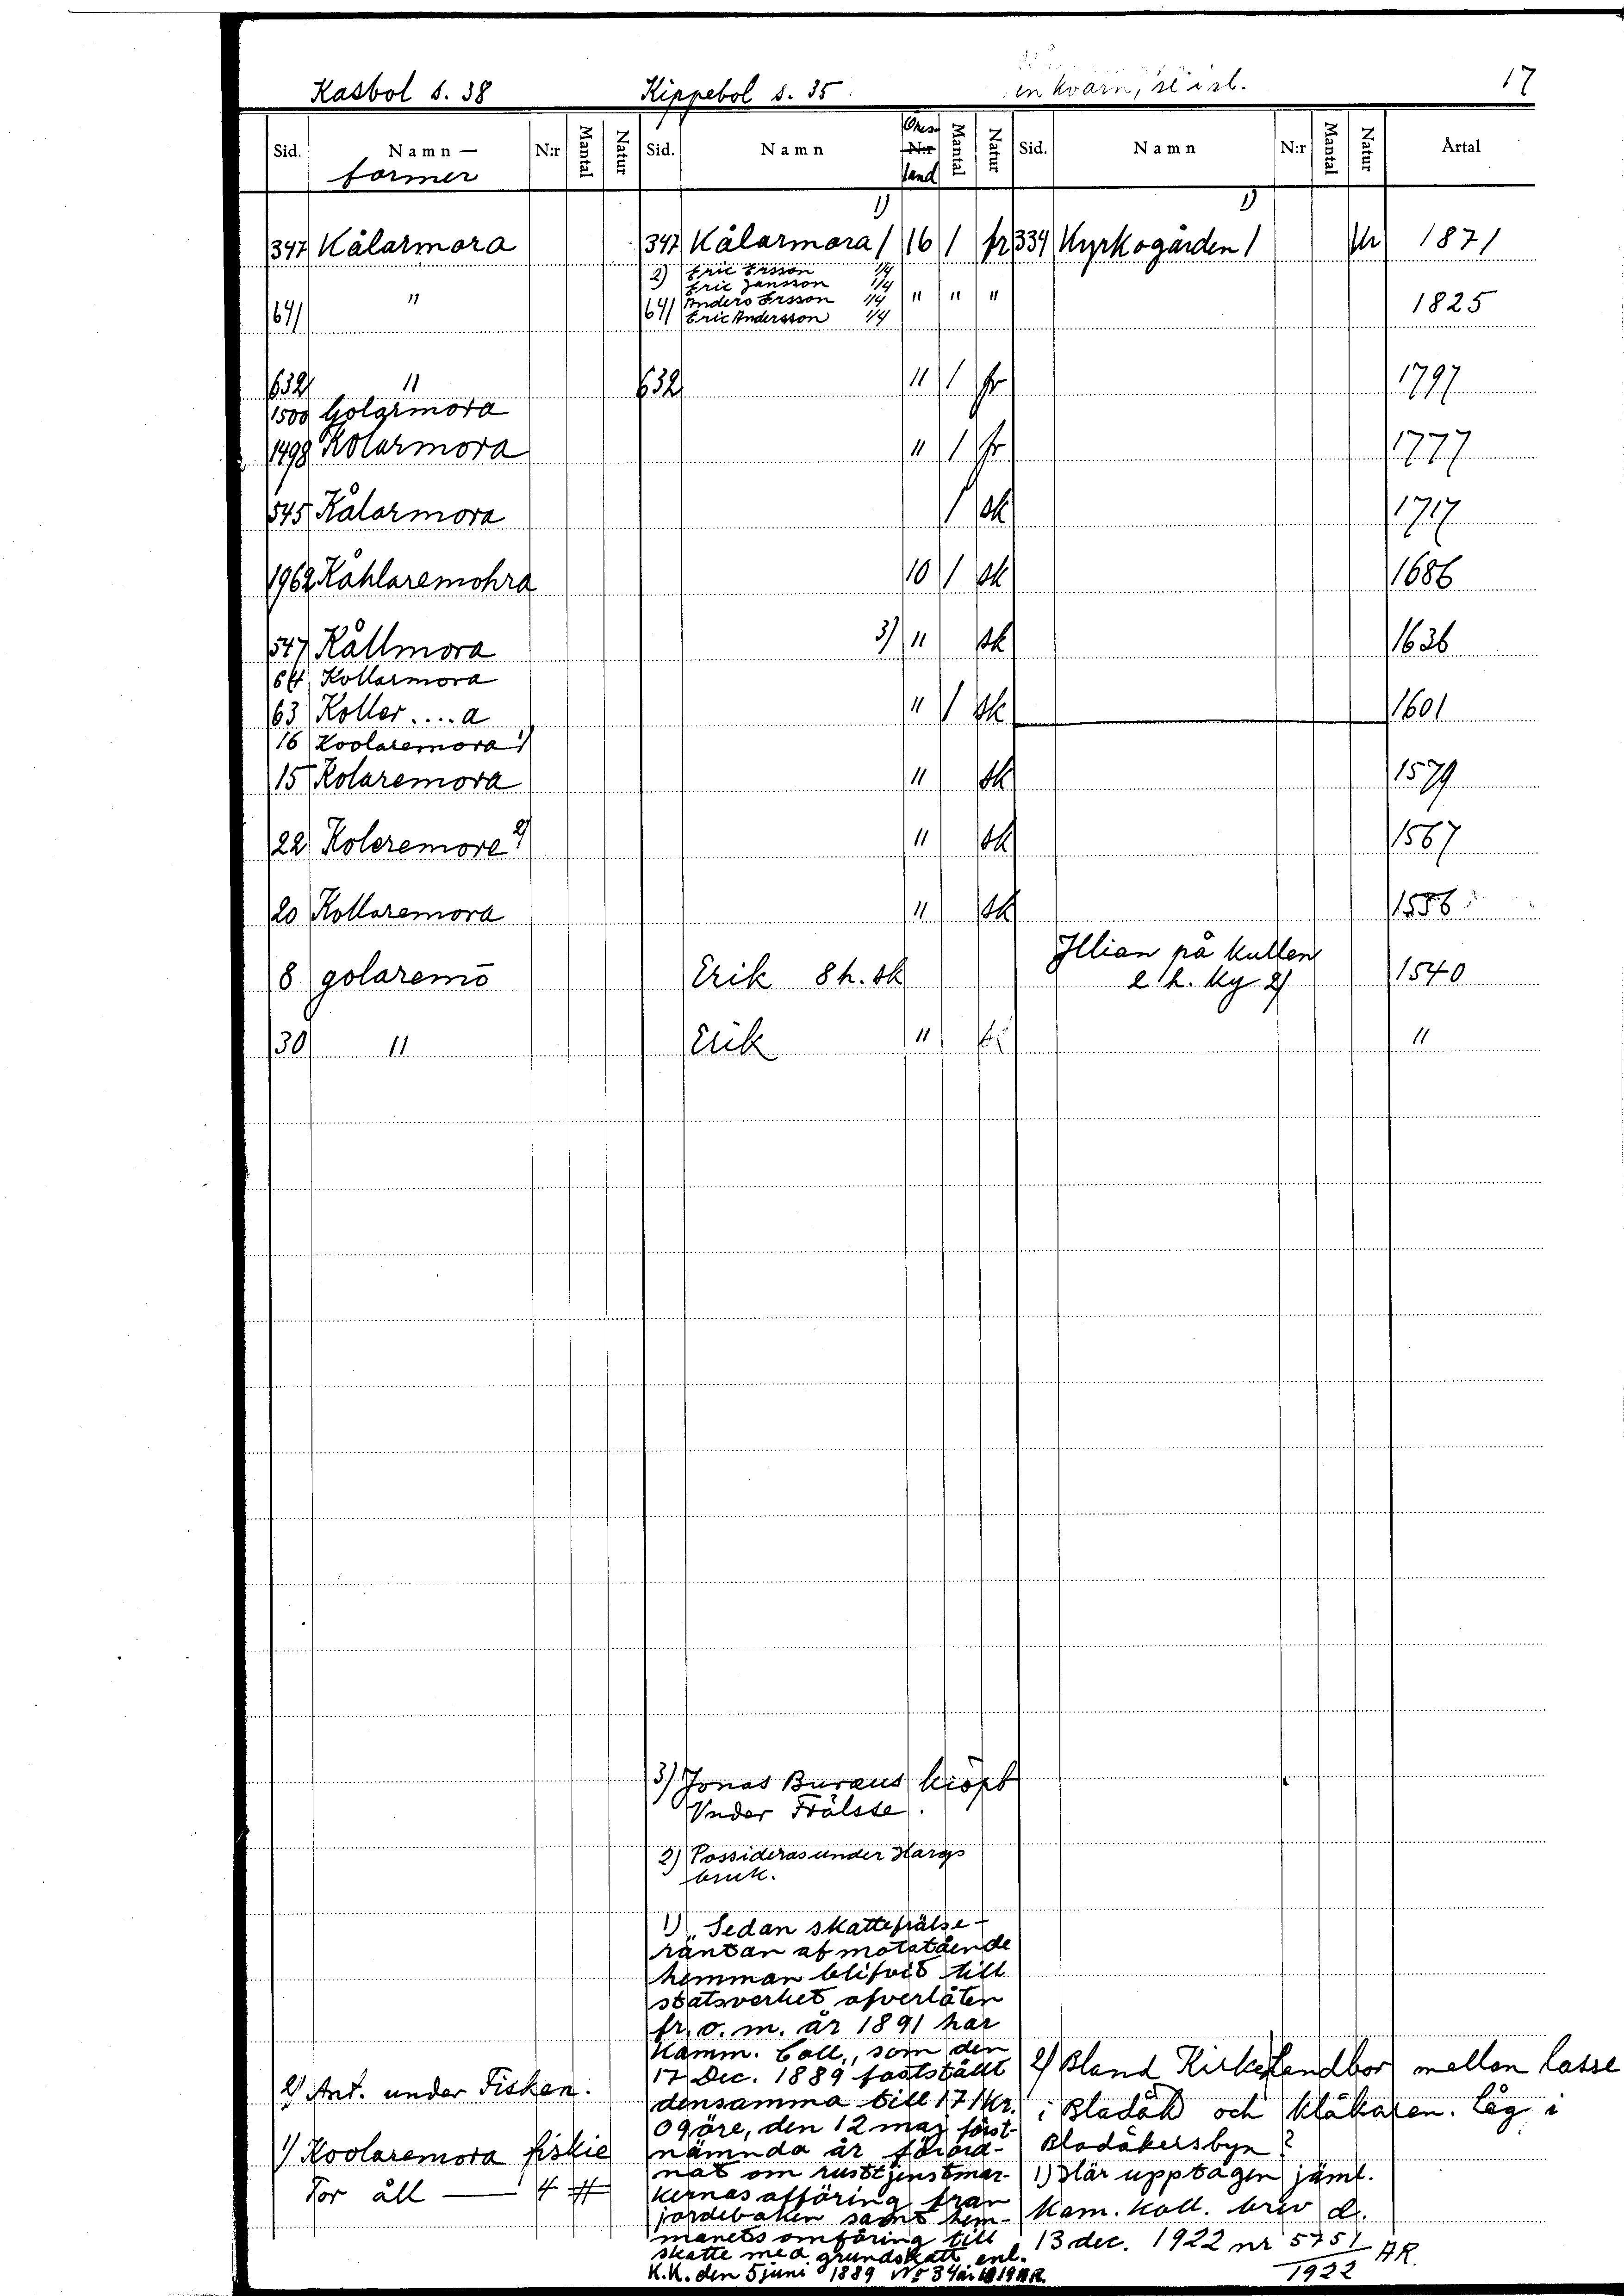 Kasbol s. 38 Kippebol s. 35 en kvarn, se isl. 17
Sid. Namn— N:r Mantal Natur Sid. Namn Öres N:r Mantal Natur Sid. Namn N:r Mantal Natur Årtal
former land
1) 1)
347 Kålarmora 347 Kålarmora 16 1 fr 334 Kyrkogården Kr 1871
2) Eric Ersson 1/4
Eric Jansson 1/4
641 " 641 Anders Ersson 1/4 " " " 1825
Eric Andersson 1/4
632 " 632 " 1 fr 1797
1500 Golarmora
1498 Kolarmora " 1 fr 1777
545 Kålarmora 1 sk 1717
1962 Kåhlaremohra 10 1 sk 1686
547 Kållmora 3) " sk 1636
64 Kollarmora
63 Koller....a " 1 sk 1601
16 Koolaremora 1)
15 Kolaremora " sk 1579
22 Koleremore 2) " sk 1567
20 Kollaremora " sk 1556
8 golaremō Erik 8 h. sk Illian på kullen
2 h. Ky 2) 1540
30 " Erik " "
3) Jonas Buraeus kiöpt
Vnder Frälsse.
2) Possideras under Hargs
bruk.
1) "Sedan skattefrälse-
räntan af motstående
hemman blifvit till
statsverket afverlåten
fr. o. m. år 1891 har
Kamm. Coll., som den
17 Dec. 1889 fastställt
densamma till 17 Kr.
09 öre, den 12 maj först-
nämnda år förord-
nat om rusttjenstmar-
kernas afföring från
jordeboken samt hem-
manets omföring till
skatte med grundskatt enl.
K.K. den 5 juni 1889
2) Ant. under Fisken.
1) Koolaremora fiskie
Tor åll — 4
2) Bland Kirkelandbor mellan lasse
i Bladåk och klåkaren. Låg i
Bladåkersbyn?
1) Här upptagen jäml.
Kam. Koll. brev d.
13 dec. 1922 nr 5751
1922 AR.